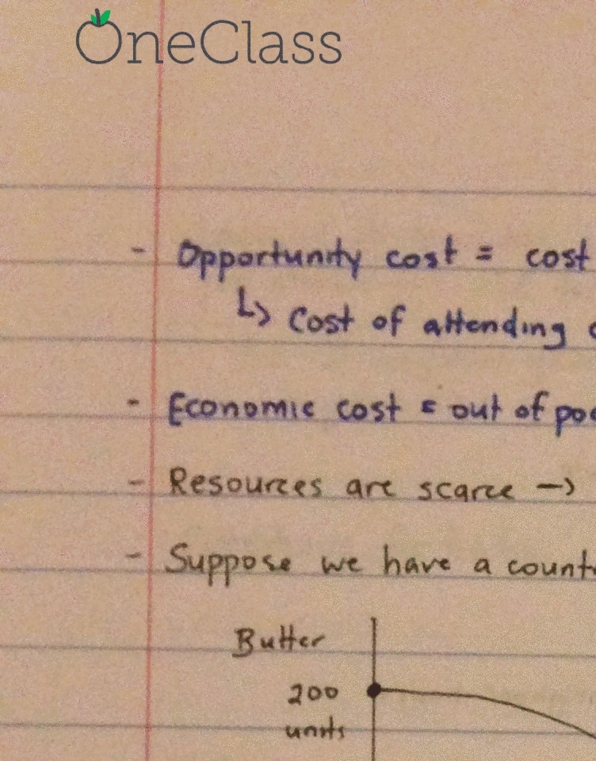 OneClass
- Opportunity cost = cost
↳ Cost of attending
- Economic cost = out of
- Resources are scarce →
- Suppose we have a
Butter
200
units